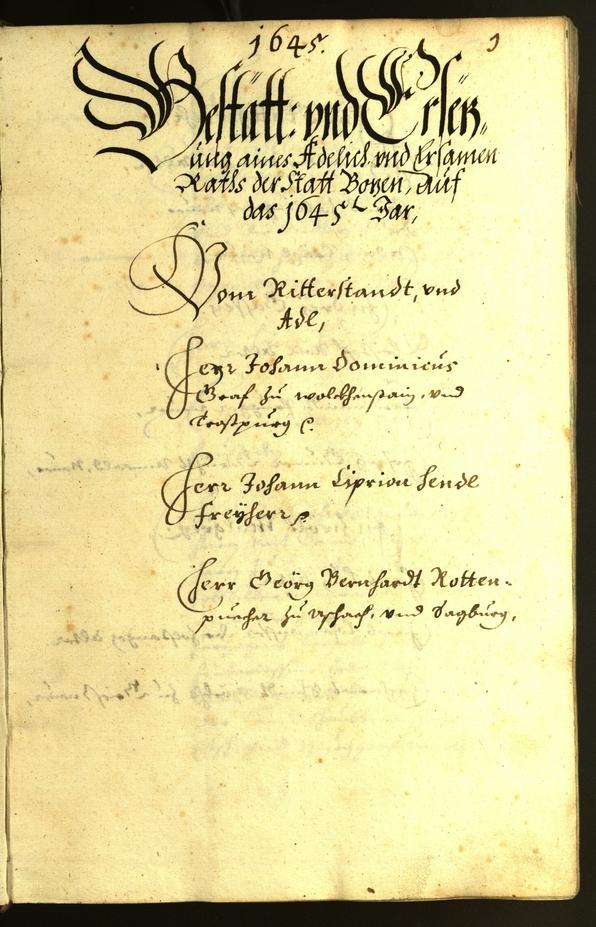 1645. 1
Bestätt: vnd Ersetz„
ung aines Adelich vnd Ersamen
Raths der Statt Bozen, Auf
das 1645 Jar,
Vom Ritterstandt, vnd
Adl,
Herr Johann Dominicus
Graf zu wolckhenstain, vnd
Trostpurg
Herr Johann Ciprion Hendl
Freÿherr
Herr Geörg Bernhardt Rotten-
puecher zu vnd Sagburg,